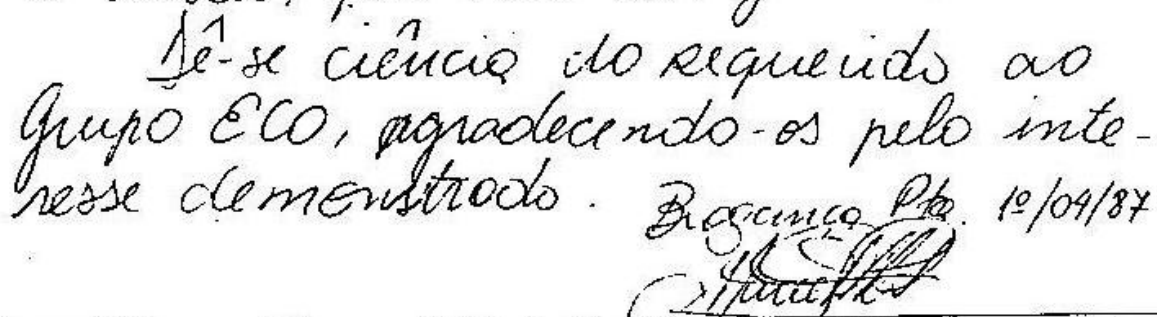 Dê-se ciência do requerido ao
Grupo ECO, agradecendo-os pelo inte-
resse demonstrado.
Bragança Pta. 1º/09/87